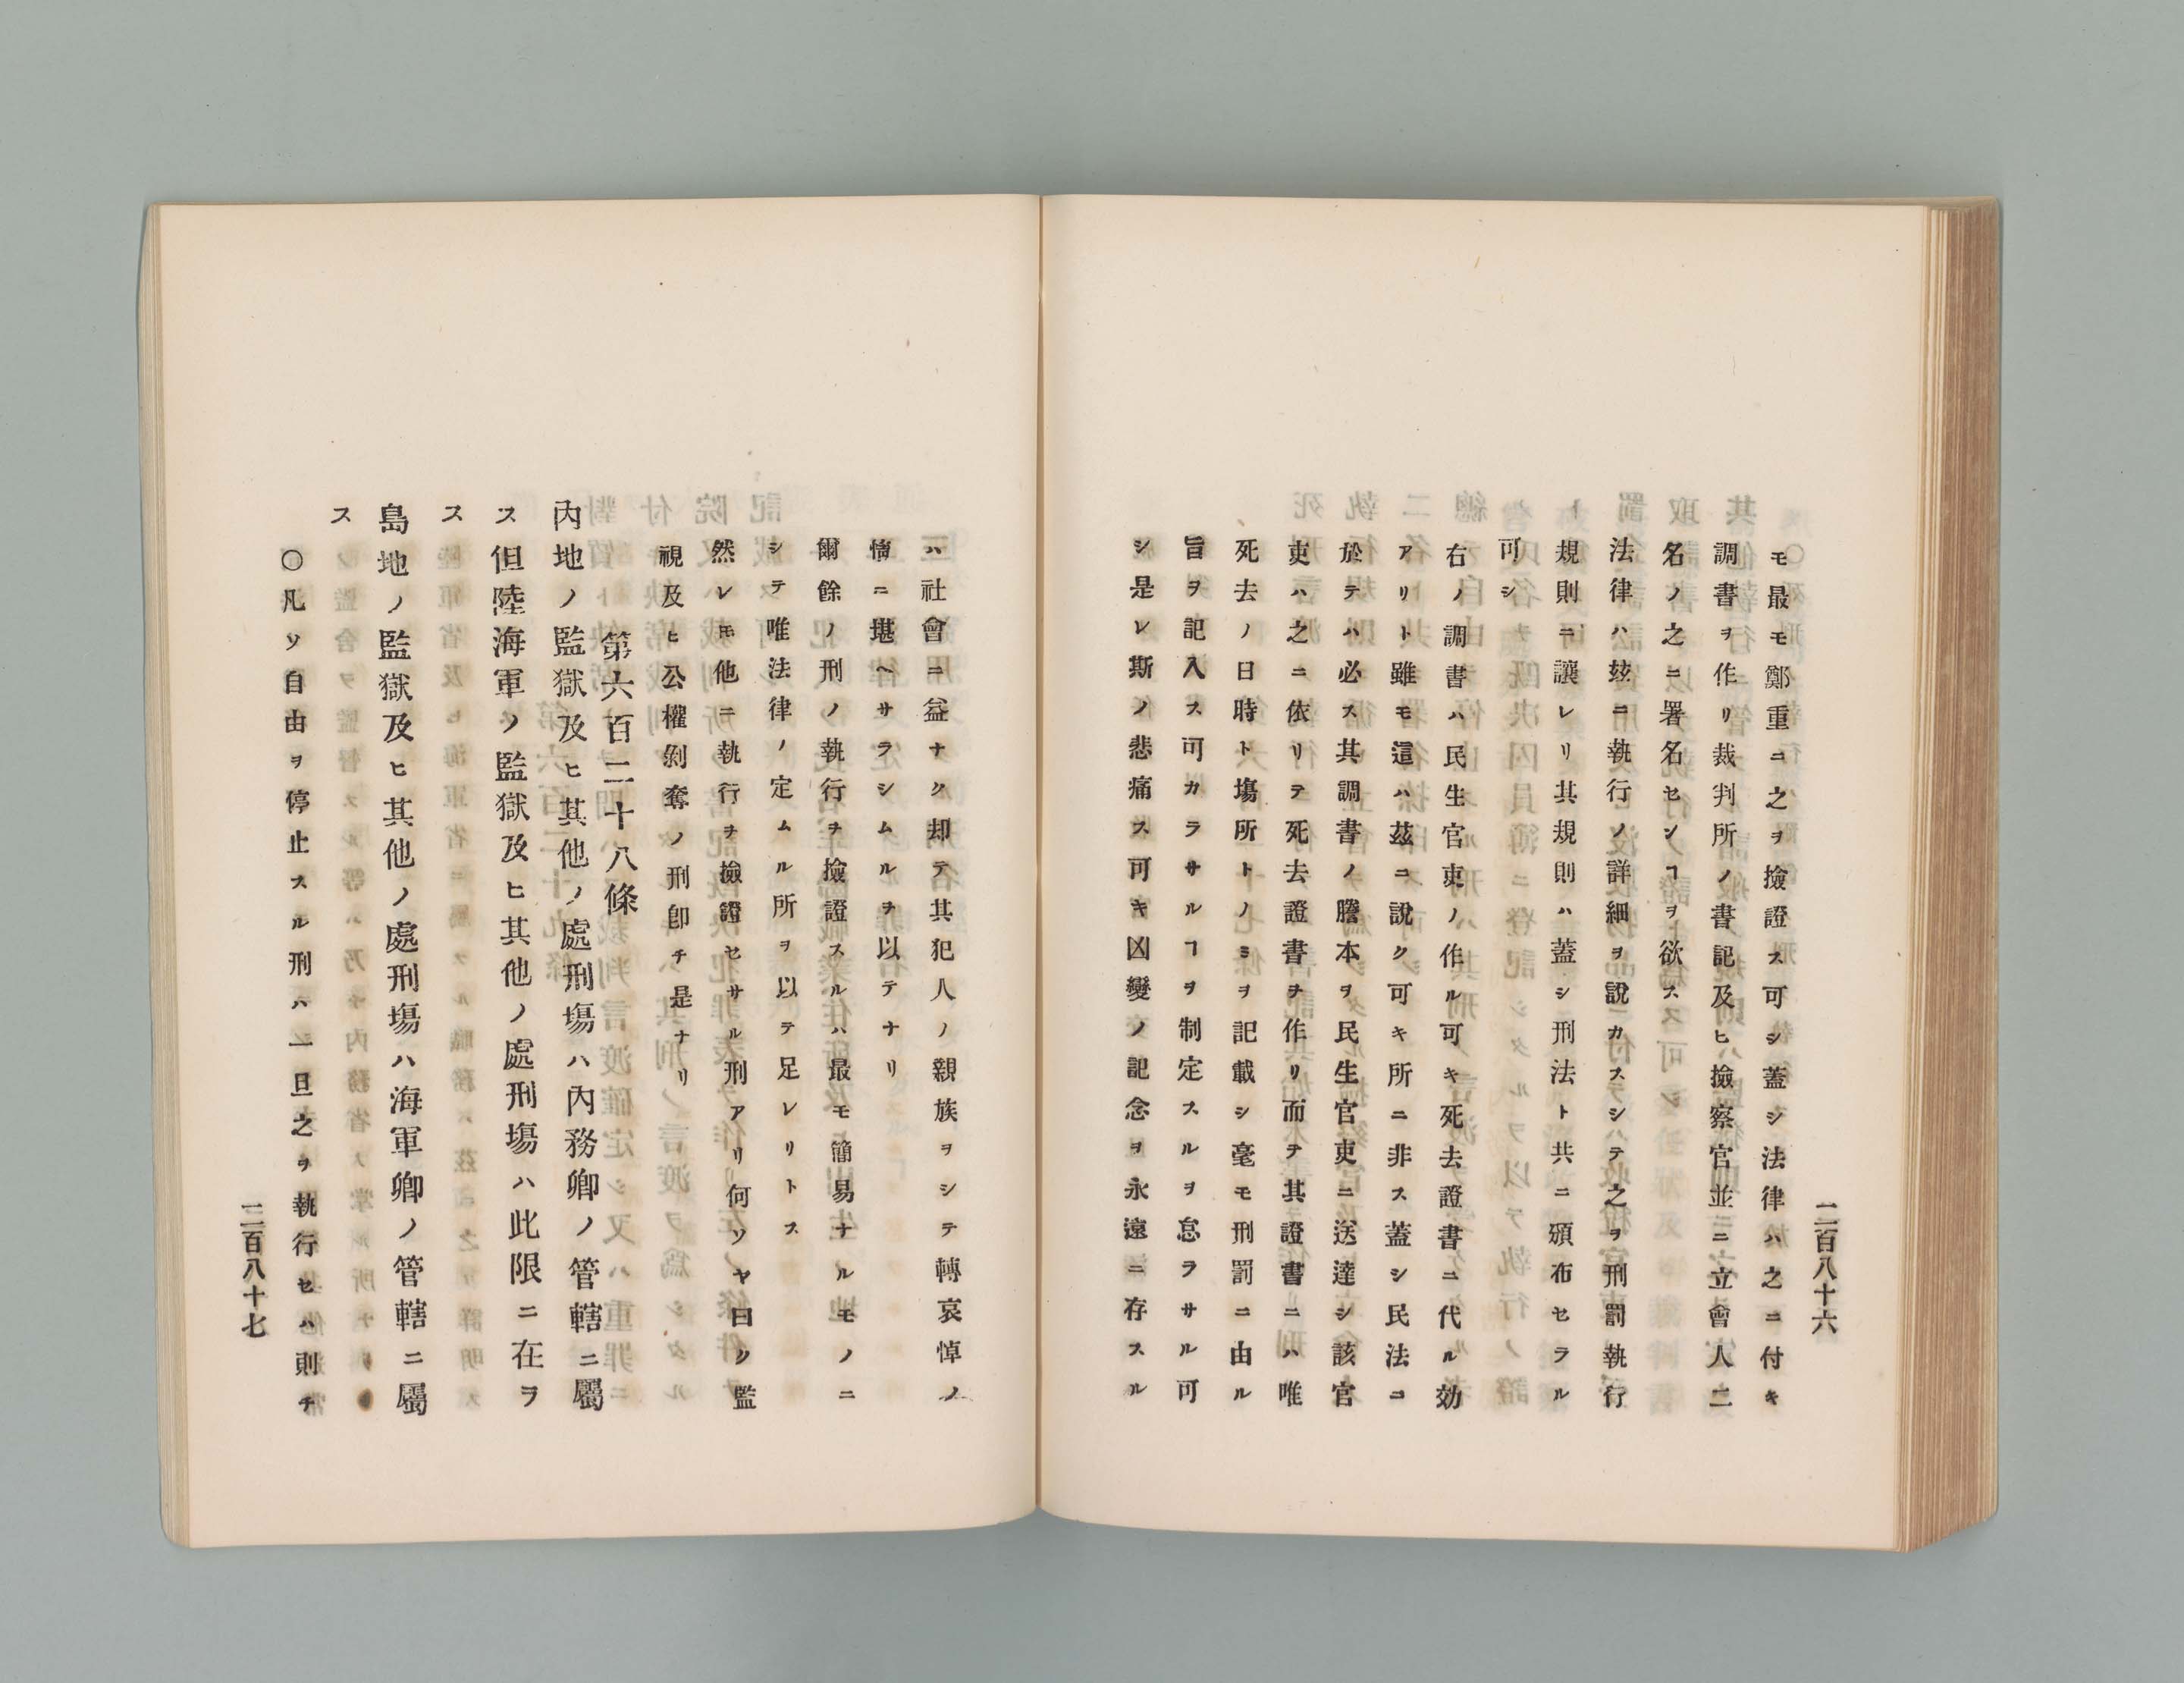 二百八十六
モ最モ鄭重ニ之ヲ撿證ス可シ蓋シ法律ハ之ニ付キ
調書ヲ作リ裁判所ノ書記及ヒ撿察官並ニ立會人二
名ノ之ニ署名セシヿヲ欲ス
法律ハ玆ニ執行ノ詳細ヲ說カスシテ之ヲ刑罰執行
規則ニ讓レリ其規則ハ蓋シ刑法ト共ニ頒布セラル
可シ
右ノ調書ハ民生官吏ノ作ル可キ死去證書ニ代ル効
アリト雖モ這ハ玆ニ說ク可キ所ニ非ス蓋シ民法ニ
於テハ必ス其調書ノ謄本ヲ民生官吏ニ送達シ該官
吏ハ之ニ依リテ死去證書ヲ作リ而テ其證書ニハ唯
死去ノ日時ト塲所トノミヲ記載シ毫モ刑罰ニ由ル
旨ヲ記入ス可カラサルヿヲ制定スルヲ怠ラサル可
シ是レ斯ノ悲痛ス可キ凶變ノ記念ヲ永遠ニ存スル
ハ社會ニ益ナク却テ其犯人ノ親族ヲシテ轉哀悼ノ
情ニ堪ヘサラシムルヲ以テナリ
爾餘ノ刑ノ執行ヲ撿證スルハ最モ簡易ナルモノニ
シテ唯法律ノ定ムル所ヲ以テ足レリトス
然レ𪜈他ニ執行ヲ撿證セサル刑アリ何ソヤ曰ク監
視及ヒ公權剝奪ノ刑卽チ是ナリ
第六百二十八條
內地ノ監獄及ヒ其他ノ處刑塲ハ內務卿ノ管轄ニ屬
ス但陸海軍ノ監獄及ヒ其他ノ處刑塲ハ此限ニ在ヲ
ス
島地ノ監獄及ヒ其他ノ處刑塲ハ海軍卿ノ管轄ニ屬
ス
〇凡ソ自由ヲ停止スル刑ハ一旦之ヲ執行セハ則チ
二百八十七